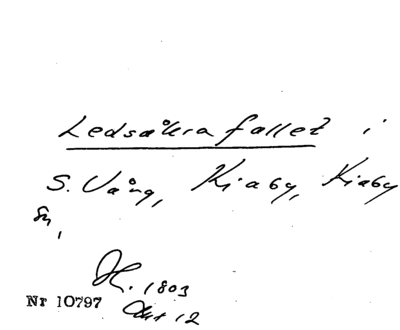 Ledsåkra fallet i
S. Vång, Kiaby, Kiaby
Sn,
H. 1803
Nr 10797 Akt 12